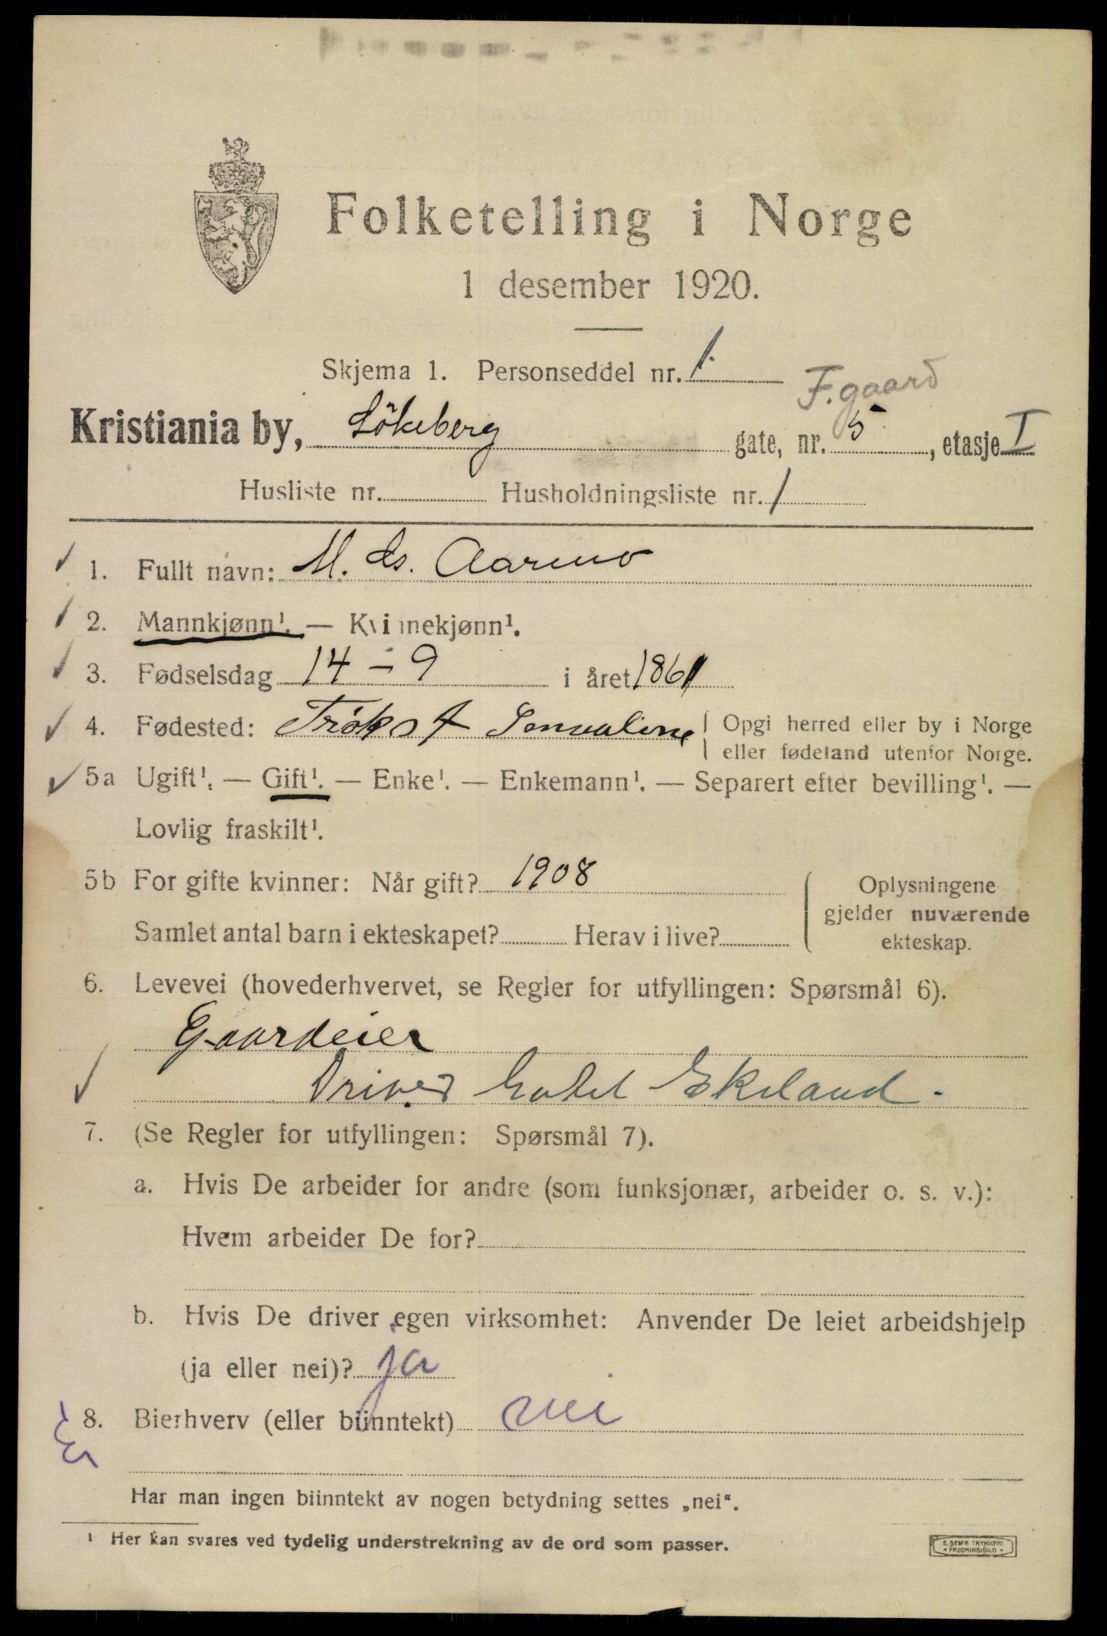 Folketelling i Norge
1 desember 1920.
Skjema 1. Personseddel nr. 1
F.gaard
Kristiania by, Lökeberg gate, nr. 5, etasje I
Husliste nr. Husholdningsliste nr. 1
1. Fullt navn: M. Aarmo
2. Mannkjønn¹. — Kvinnekjønn¹.
3. Fødselsdag 14 – 9 i året 1861
4. Fødested: { Opgi herred eller by i Norge
eller fødeland utenfor Norge.
5a Ugift¹. — Gift¹. — Enke¹. — Enkemann¹. — Separert efter bevilling¹. —
Lovlig fraskilt¹.
5b For gifte kvinner: Når gift? 1908
Samlet antal barn i ekteskapet? Herav i live?
{ Oplysningene
gjelder nuværende
ekteskap.
6. Levevei (hovederhvervet, se Regler for utfyllingen: Spørsmål 6).
Gaardeier
Driver Hotel Ekeland.
7. (Se Regler for utfyllingen: Spørsmål 7).
a. Hvis De arbeider for andre (som funksjonær, arbeider o. s. v.):
Hvem arbeider De for?
b. Hvis De driver egen virksomhet: Anvender De leiet arbeidshjelp
(ja eller nei)? ja
8. Bierhverv (eller biinntekt) nei
Har man ingen biinntekt av nogen betydning settes „nei“.
¹ Her kan svares ved tydelig understrekning av de ord som passer.
E. SEM'S TRYKKERI
FREDRIKSHALD